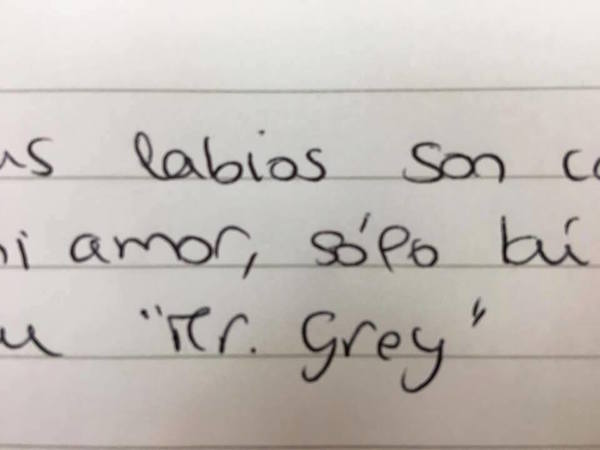 us labios son co
ni amor, sólo tú
u "Mr. Grey"